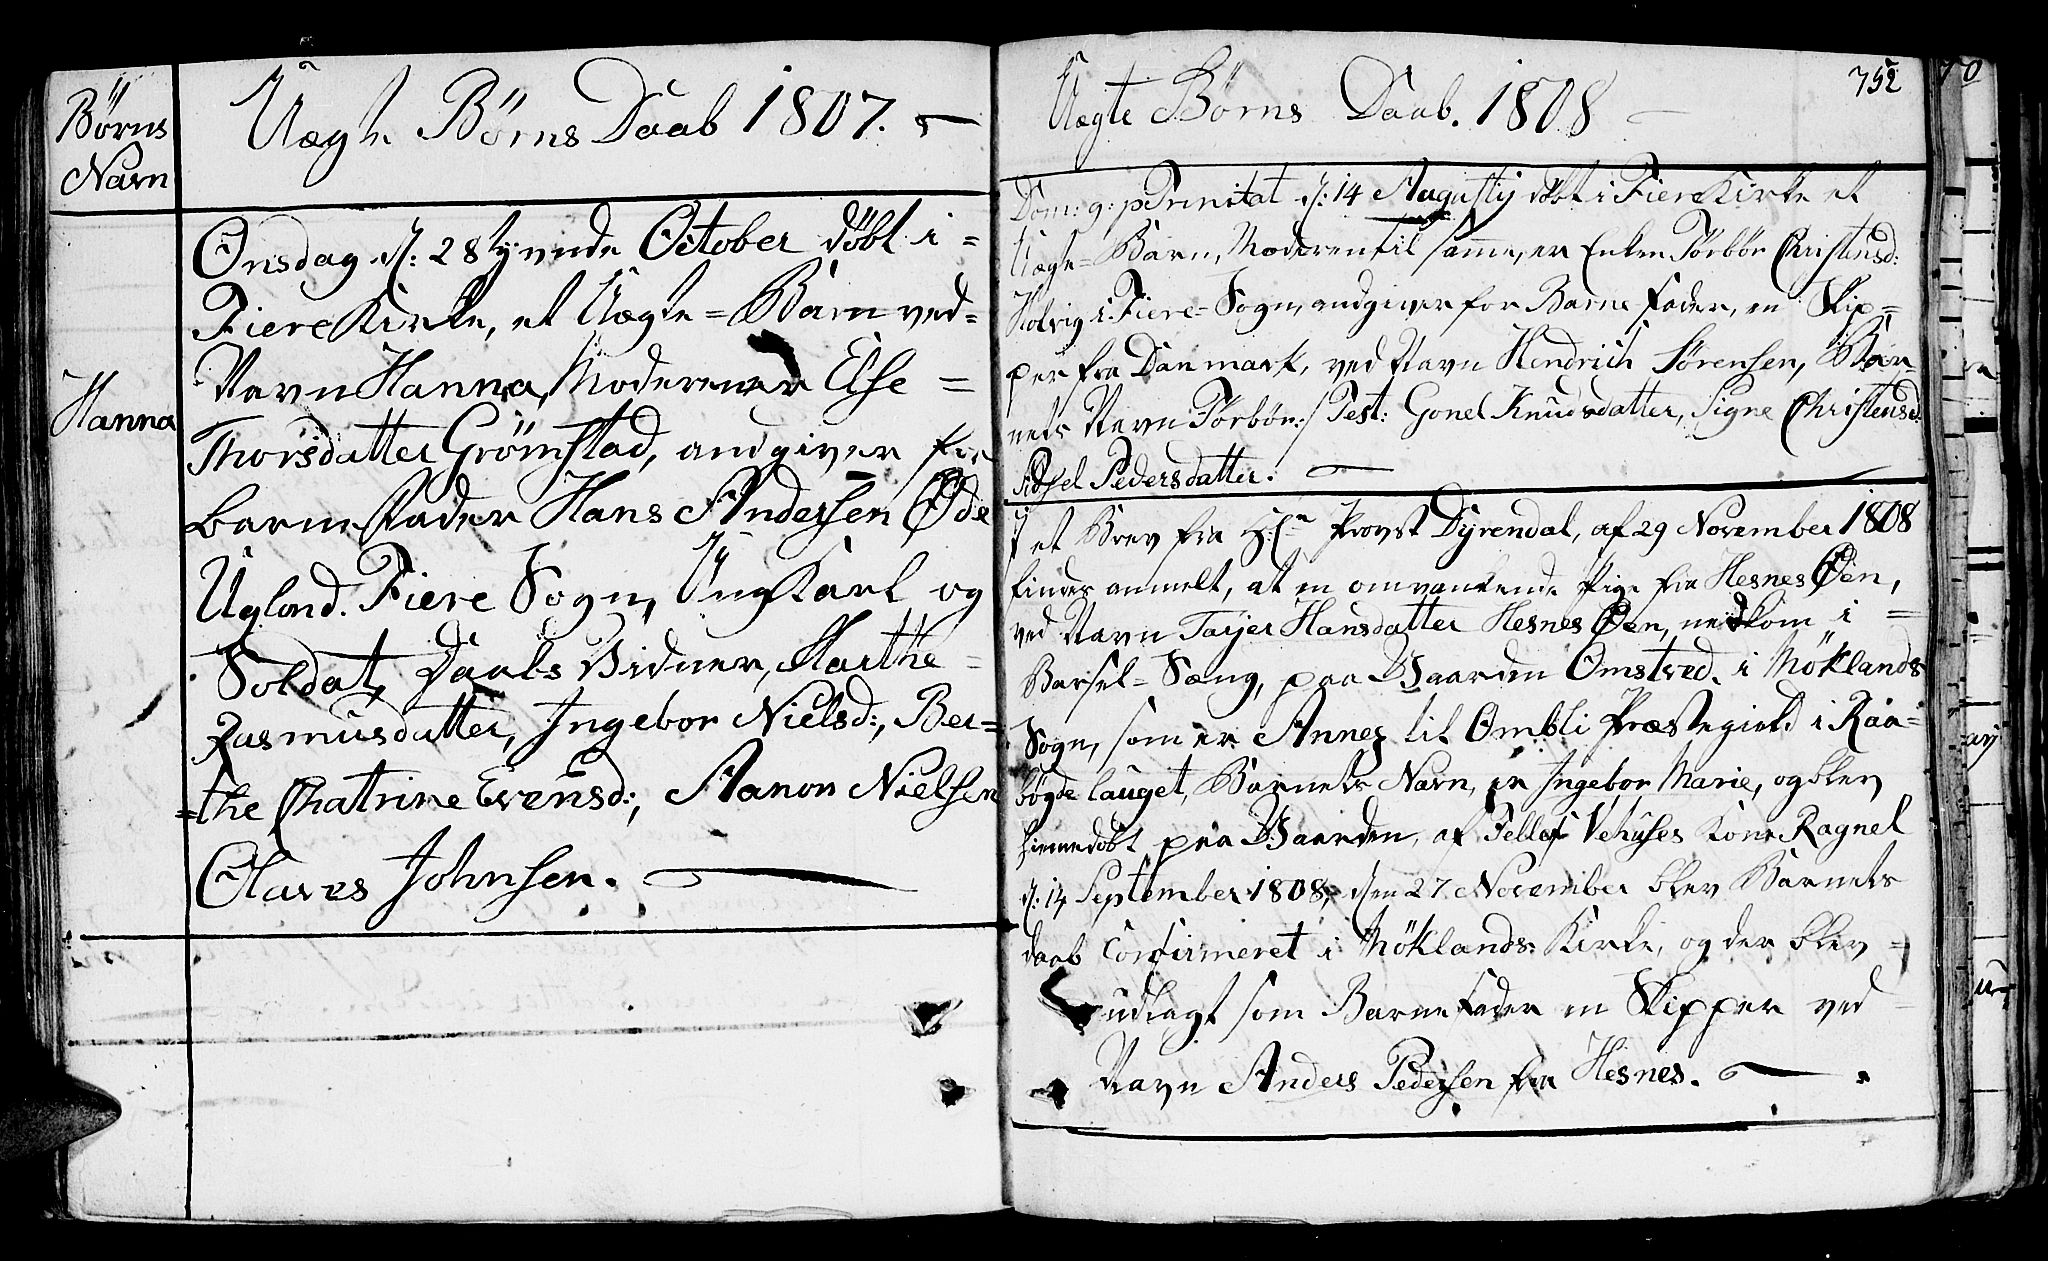 Børns
Navn
Uægte Børns Daab 1807.
Onsdag d: 28tyvende October døbt i =
Fiere Kirke, et Uægte = Barn ved =
Navn Hanna, Moderen er Else =
Hanna
Thorsdatter Grømstad, audgiver for
barne Fader Hans Andersen Øde
Ugland. Fiere Sogn, Ung Karl og
Soldat, Daabs Vidner, Marthe =
Rasmusdatter, Ingebor Nielsd:, Ber=
=the Chatrine Evensd:, Aanon Nielsen
Olaves Johnsen.
752
Uægte Børns Daab. 1808
Dom: 9: p Trinitat d: 14 Augustij døbt i Fiere Kirke et
Uægte = Barn, Moderen til samme, er Enken Torbør Christensd:
Holvig i Fiere = Sogn, audgiver for Barne fader, en Skip=
per fra Danmark, ved Navn Hendrich Sørensen, Bar-
nets Navn Torbør :/ Test: Gonel Knudsdatter, Signe Christensd:
Sidsel Pedersdatter.
I et Brev fra Hr Provst Dyrendal, af 29 November 1808
findes anmelt, at en omvankende Pige fra Hesnes Øen,
ved Navn Tarjer Hansdatter Hesnes Øen, nedkom i =
Barsel = Sæng, paa Gaarden Omstved. i Möklands
Sogn, som er Annex til Ombli Præstegield i Raa=
bøgde lauget, Barnets Navn, er Ingebor Marie, og blev
hiemmedøbt paa Gaarden, af Tellef Vehuses Kone Ragnel
d: 14 September 1808, den 27 November blev Barnets
daab Confirmeret i Möklands Kirke, og der blev =
udlagt som Barnefader en Skipper ved
Navn Anders Pedersen fra Hesnes.